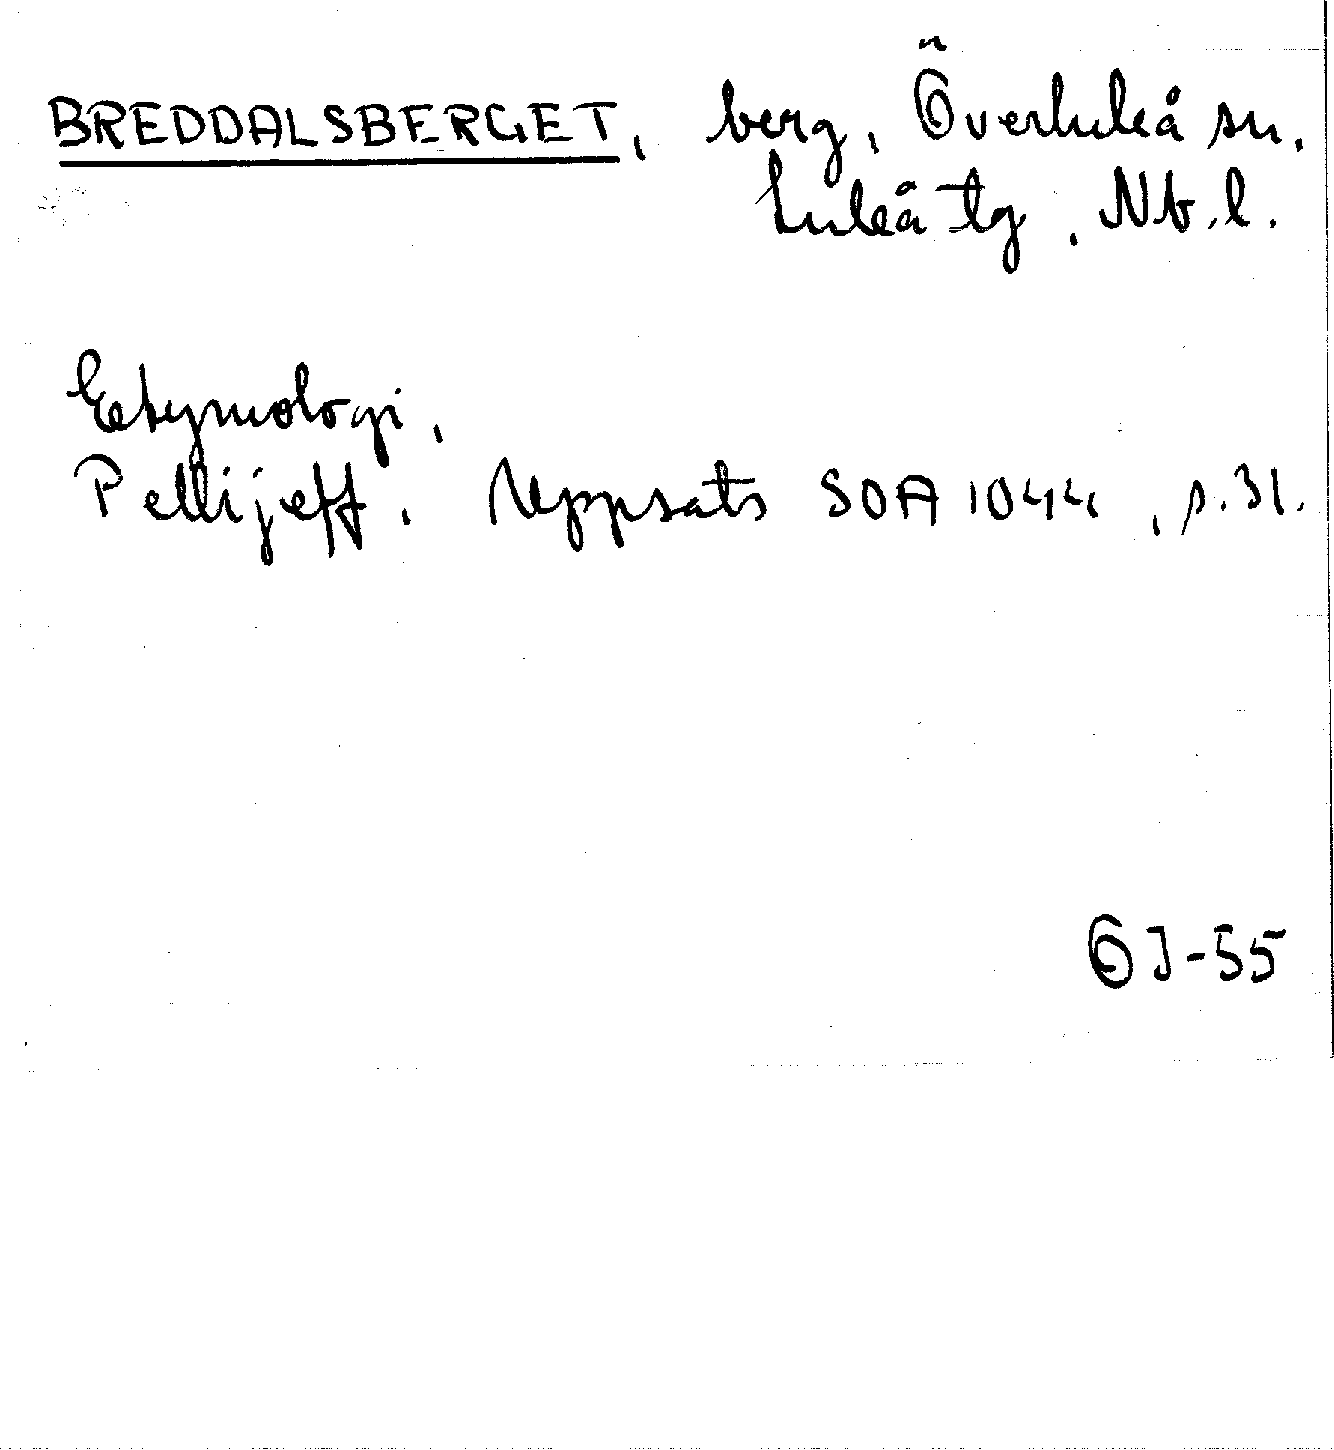 BREDDALSBERGET, berg, Överluleå sn.
Luleå tg, Nb.l.
Etymologi,
Pellijeff. Uppsats SOA 1044, s.31.
ÖJ-55